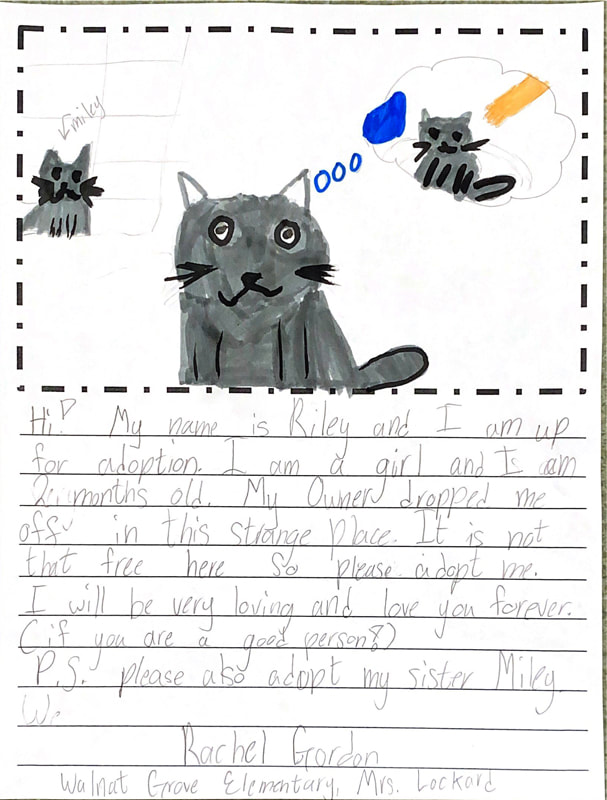 miley
Hi! My name is Riley and I am up
for adoption. I am a girl and I am
2 months old. My Owner dropped me
off in this strange place. It is not
that free here so please adopt me.
I will be very loving and love you forever.
(if you are a good person!)
P.S. please also adopt my sister Miley.
We
Rachel Gordon
Walnat Grove Elementary, Mrs. Lockard